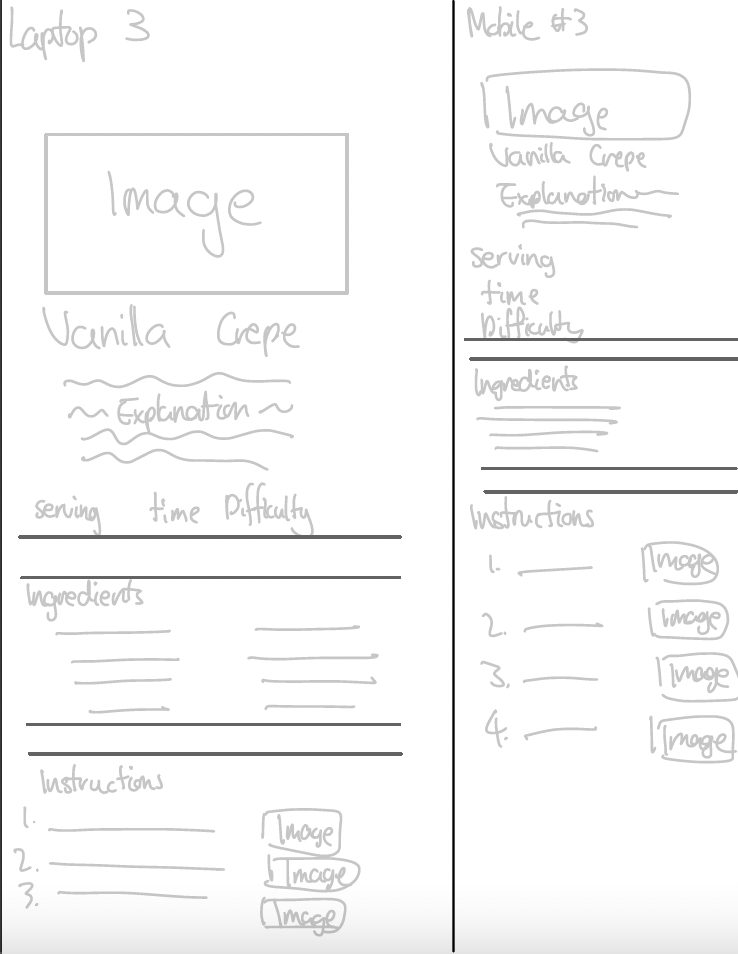 Laptop 3
Image
Vanilla Crepe
Explanation
serving time Difficulty
Ingredients
Instructions
1. Image
2. Image
3. Image
Mobile #3
Image
Vanilla Crepe
Explanation
serving
time
Difficulty
Ingredients
Instructions
1. Image
2. Image
3. Image
4. Image